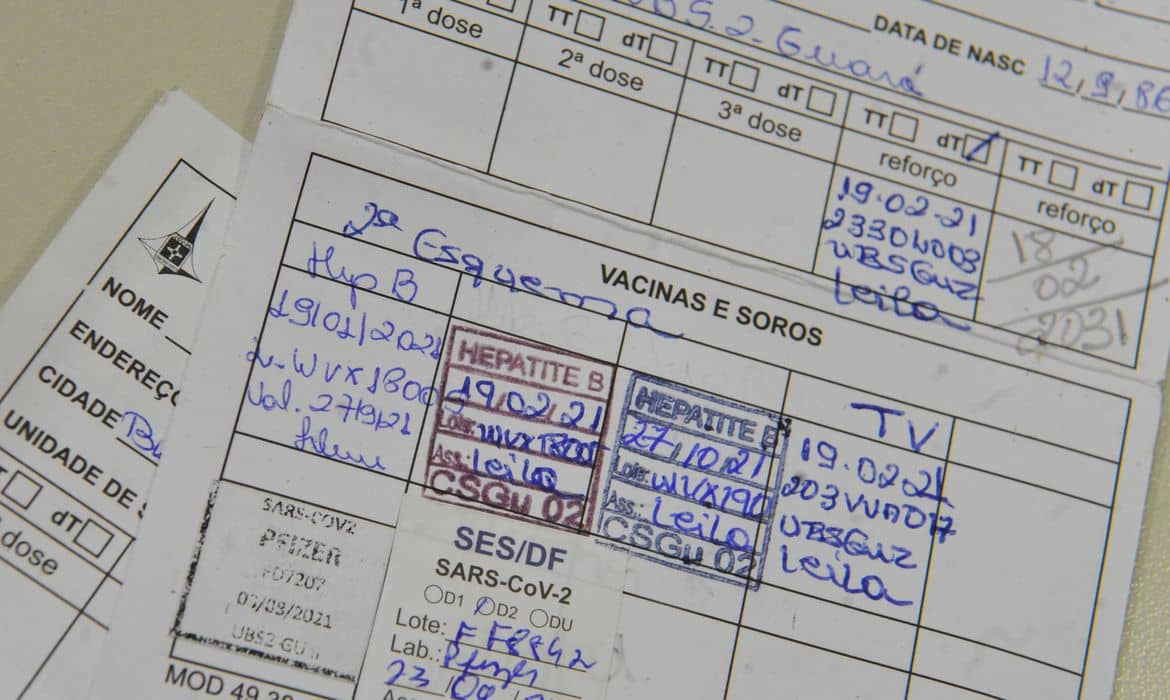 UBS.2 - Guará
DATA DE NASC 12,9,86
1ª dose
TT dT
2ª dose
TT dT
3ª dose
TT dT
reforço
19.02.21
UBSGU2
Leila
TT dT
reforço
18
02
2031
VACINAS E SOROS
2º Esquema
Hep B
19/01/2021
Val. 27/9/21
HEPATITE B
19/02/21
Lote:
Ass.: Leila
CSGu 02
HEPATITE B
27/10/21
Lote: WVX190
Ass.: Leila
CSGu 02
TV
19.02.21
UBSGU2
Leila
SARS-COV2
PFIZER
FD7207
UBS2 GU
SES/DF
SARS-CoV-2
D1 D2 DU
Lote: FF8842
Lab.: Pfizer
23
MOD 49
NOME
ENDEREÇ
CIDADE
UNIDADE DE
dT
dose